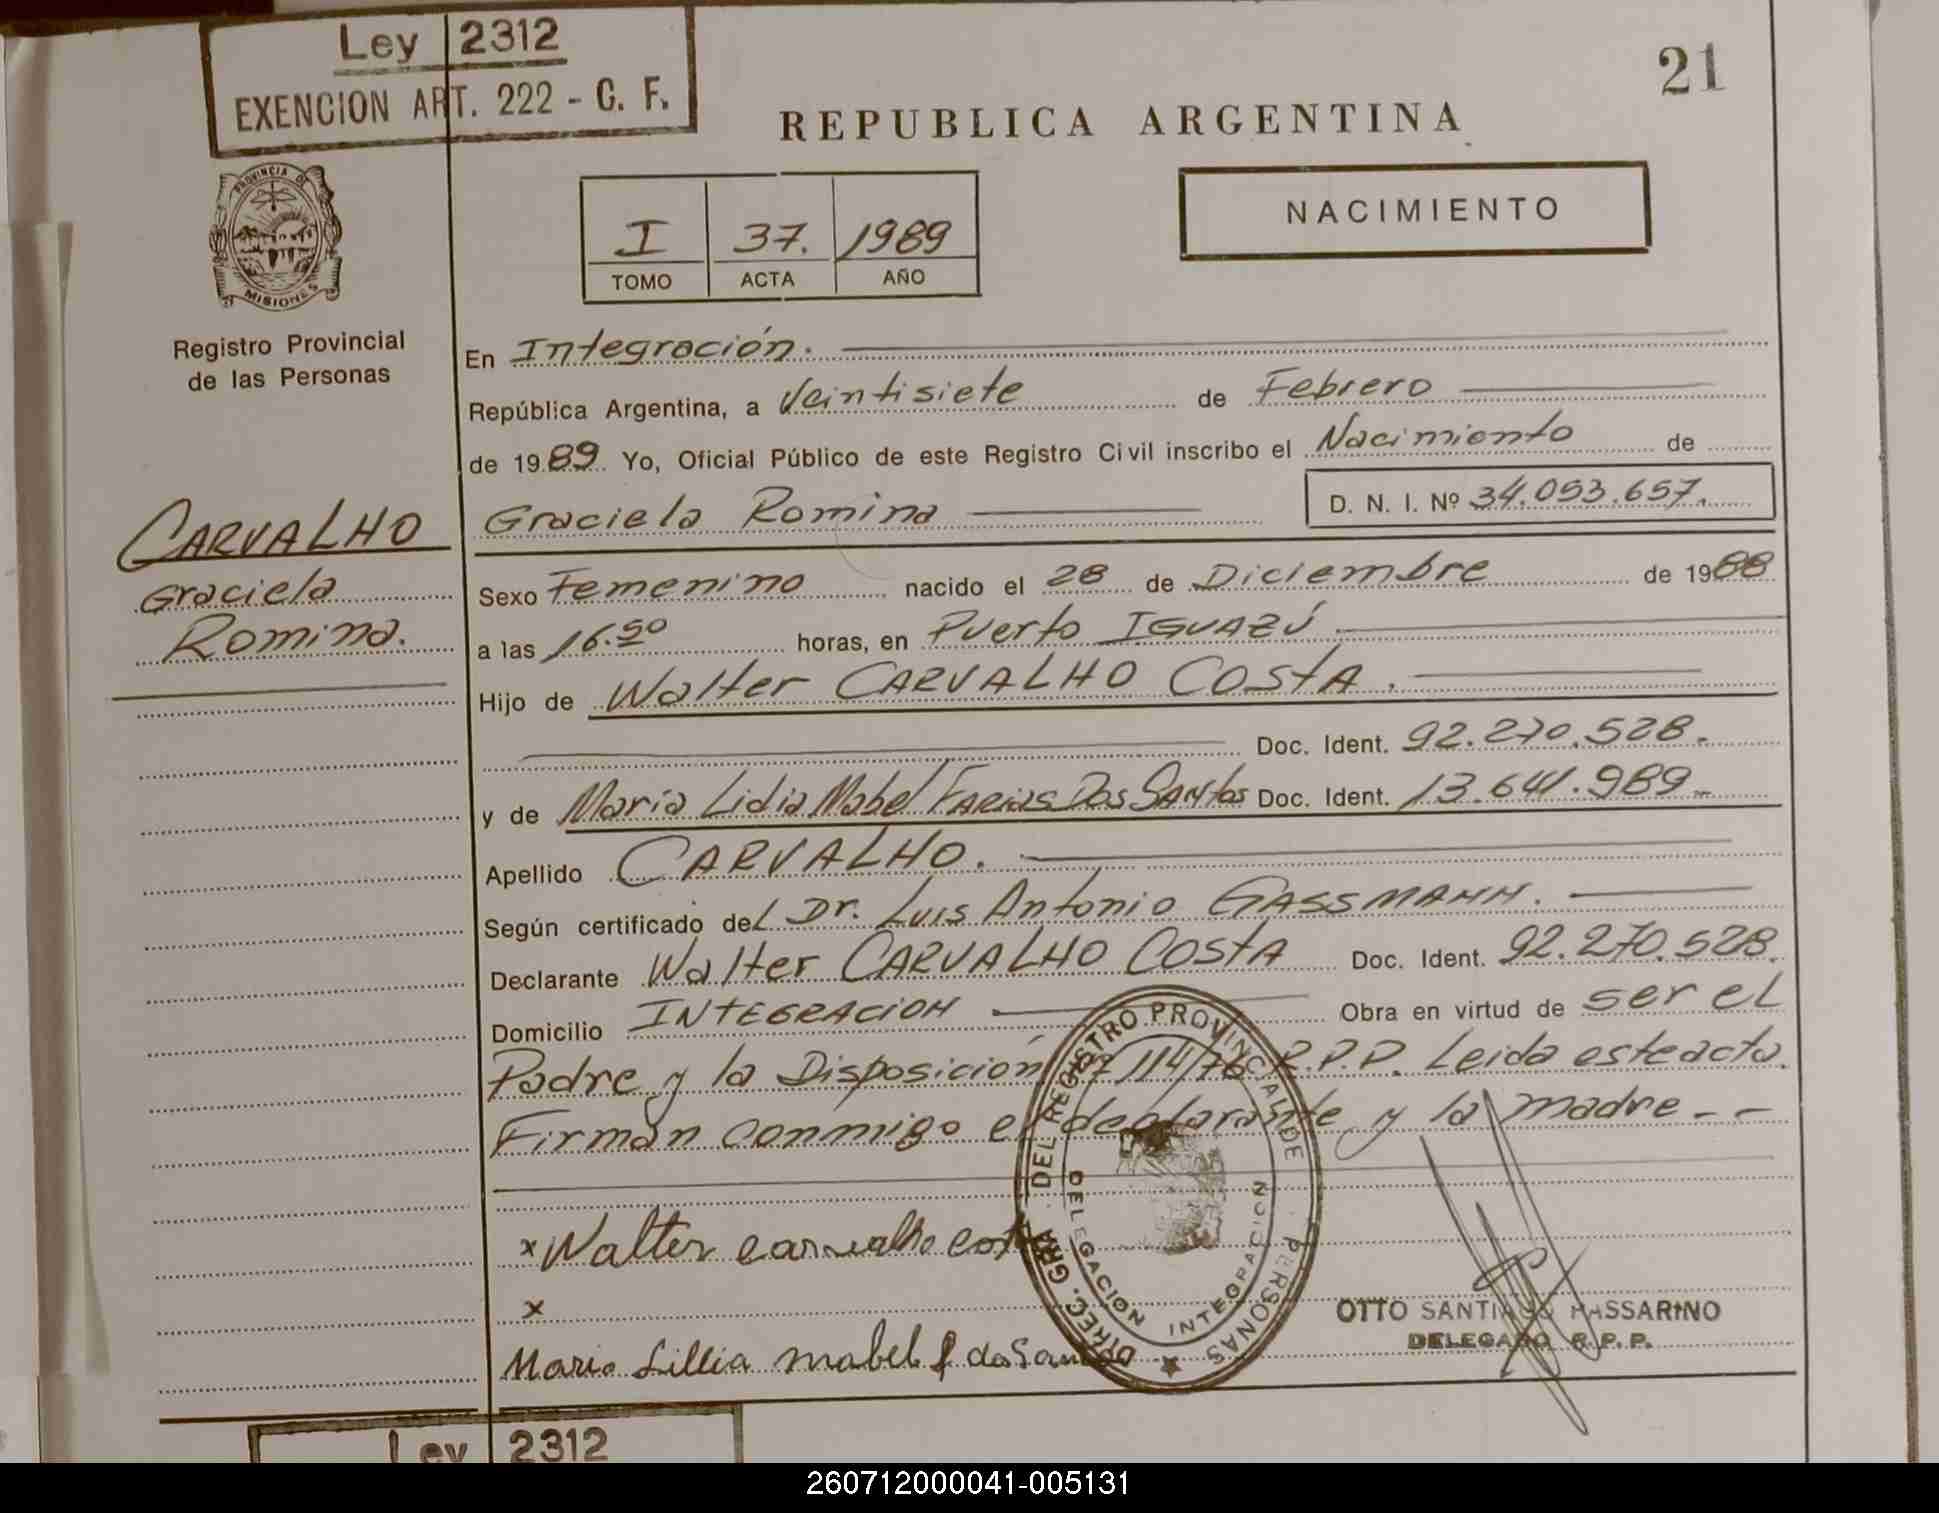 Ley 2312
EXENCION ART. 222 - C. F.
21
REPUBLICA ARGENTINA
PROVINCIA DE MISIONES
NACIMIENTO
I 37. 1989
TOMO ACTA AÑO
Registro Provincial
de las Personas
CARVALHO
Graciela
Romina.
En Integración.
República Argentina, a Veintisiete de Febrero
de 1989 Yo, Oficial Público de este Registro Civil inscribo el Nacimiento de
Graciela Romina D. N. I. Nº 34.053.657.
Sexo Femenino nacido el 28 de Diciembre de 1988
a las 16.50 horas, en Puerto IGUAZÚ
Hijo de Walter CARVALHO COSTA.
Doc. Ident. 92.270.528.
y de María Lidia Mabel FARIAS Dos SANtos Doc. Ident. 13.641.989
Apellido CARVALHO.
Según certificado del Dr. Luis Antonio GASSMANN.
Declarante Walter CARVALHO COSTA Doc. Ident. 92.270.528.
Domicilio INTEGRACION Obra en virtud de ser el
Padre y la Disposición 114/76 R.P.P. Leida esteacta.
Firman conmigo el declarante y la madre--
x Walter carvalho
x
Maria Lillia mabel f dos
DIREC. GRAL. DEL REGISTRO PROVINCIAL DE PERSONAS
DELEGACION INTEGRACION
OTTO SANTIAGO PASSARINO
DELEGADO R.P.P.
Ley 2312
260712000041-005131